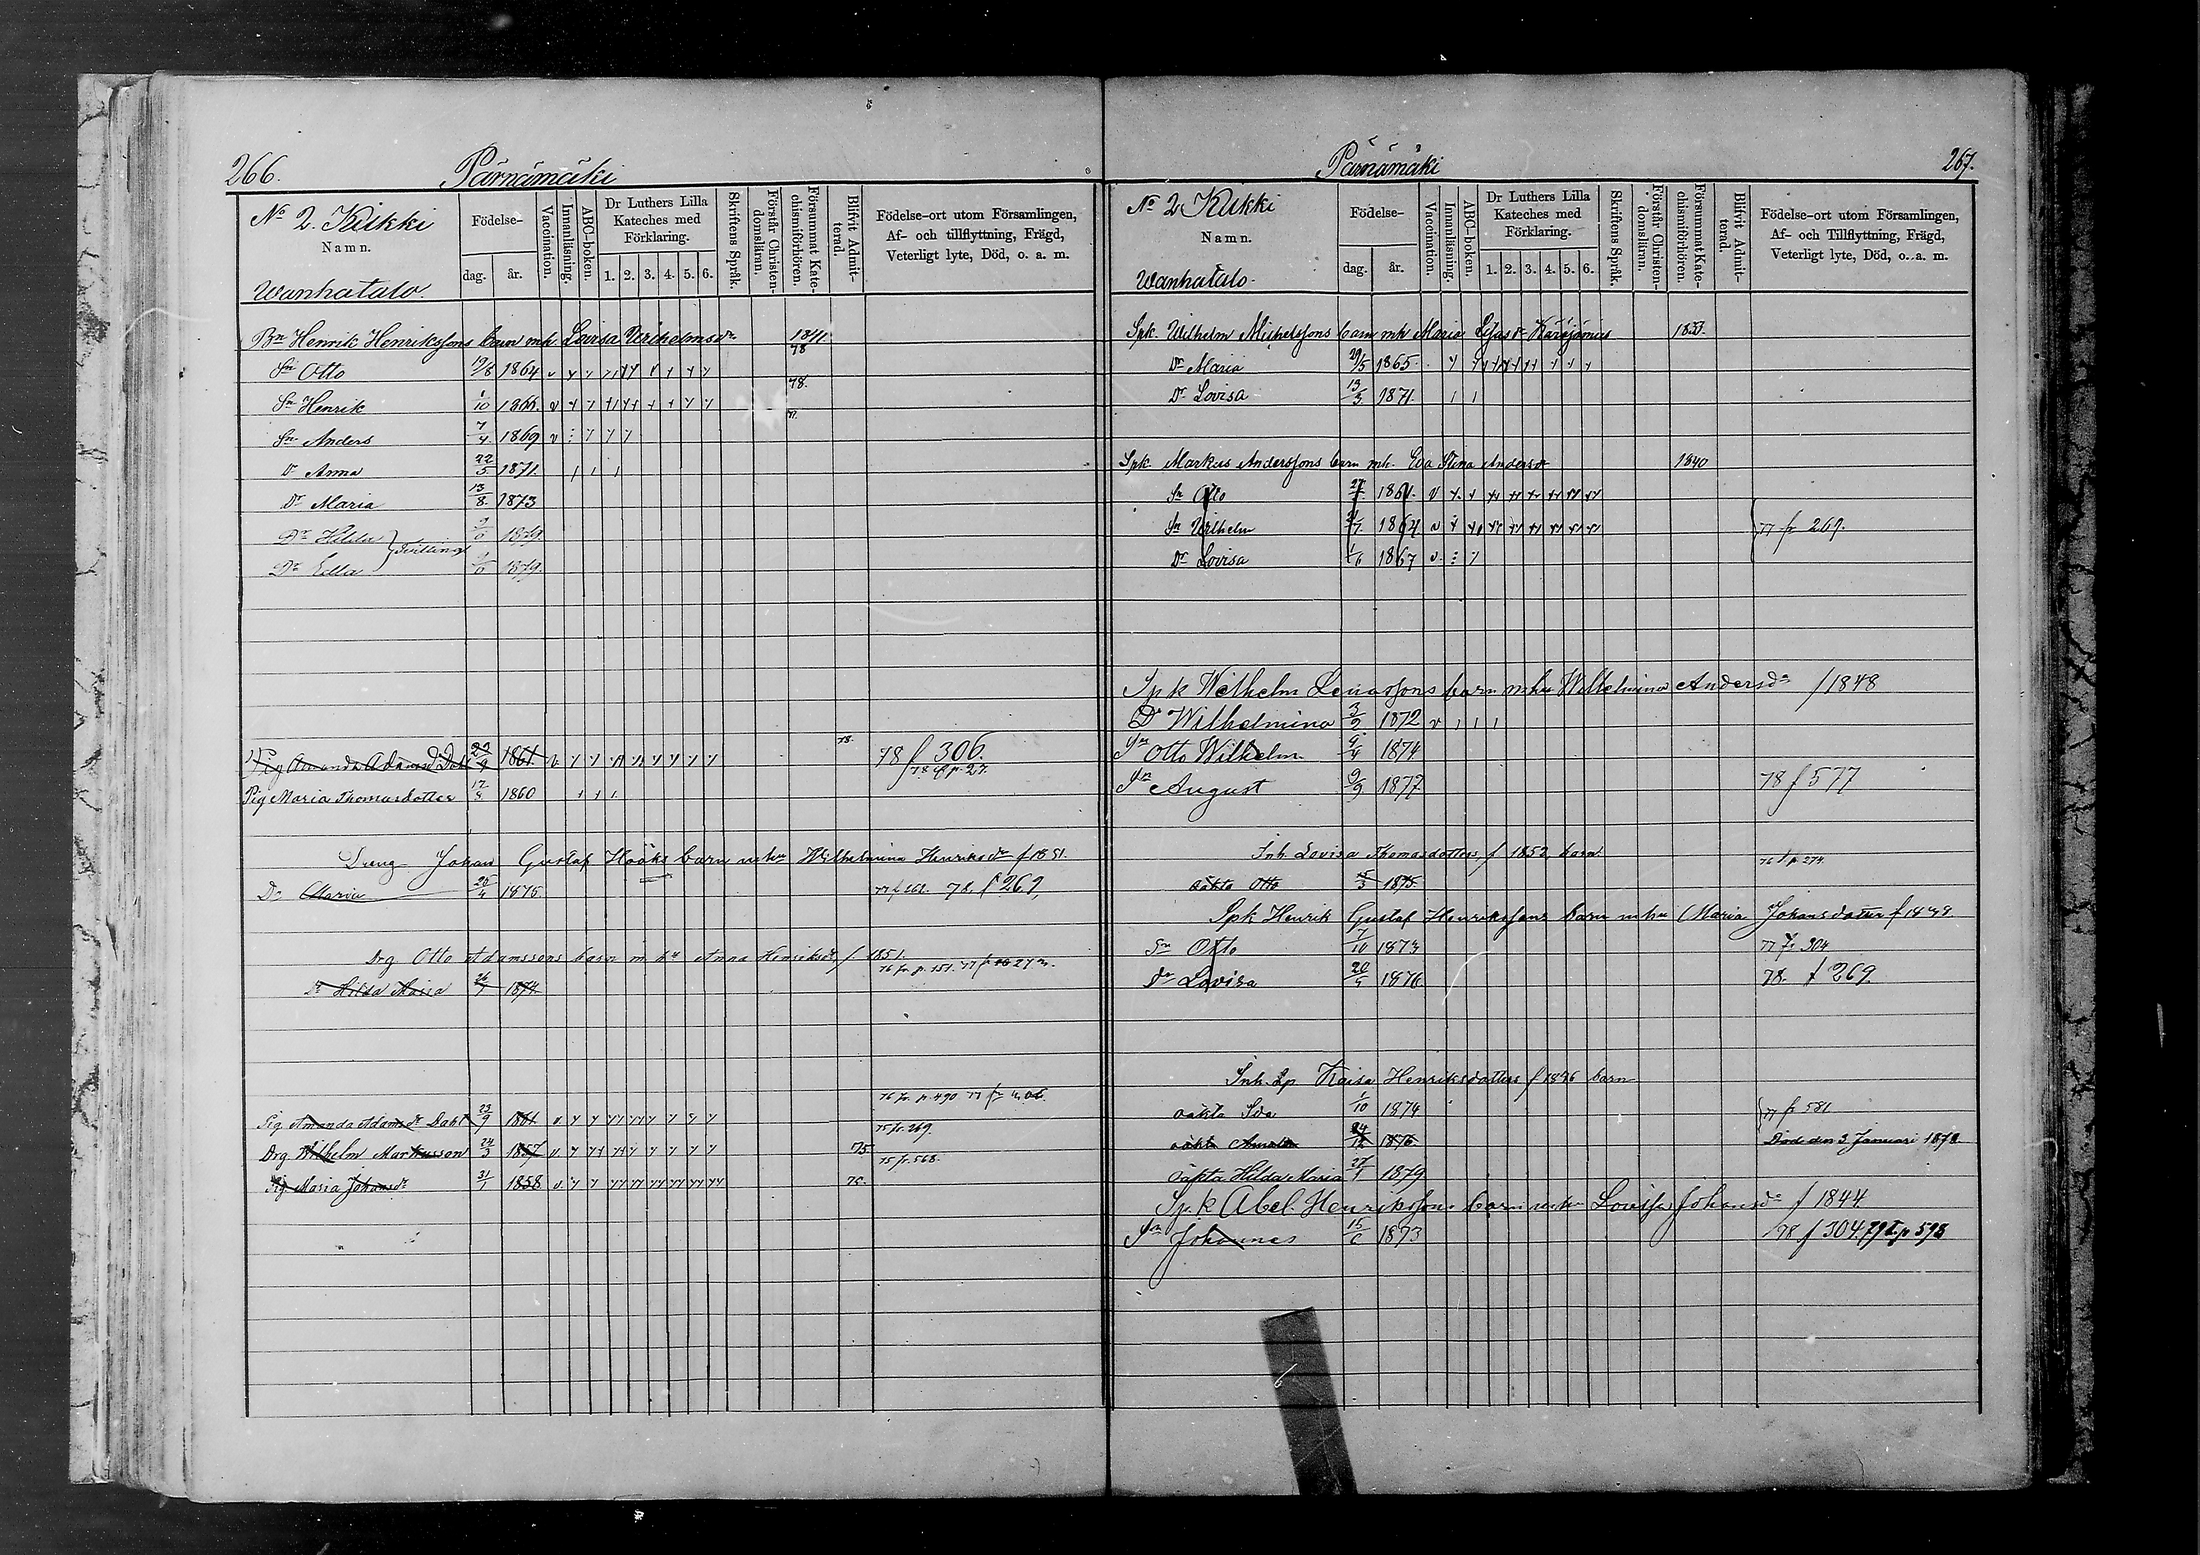 266.
Pärnämäki
No 2. Kiikki
Namn.
Wanhatalo.
Födelse-
dag. år.
Vaccination.
Innanläsning.
ABC-boken.
Dr Luthers Lilla Kateches med Förklaring.
1. 2. 3. 4. 5. 6.
Skriftens Språk.
Förstår Christendomsläran.
Försummat Katechismiförhören.
Blifvit Admitterad.
Födelse-ort utom Församlingen,
Af- och tillflyttning, Frägd,
Veterligt lyte, Död, o. a. m.
Bn Henrik Henrikssons barn mh. Lovisa Wilhelmsdr 1841.
Sn Otto 19/8 1864 78
Sn Henrik 1/10 1866. 78.
Sn Anders 7/4 1869
Dr Anna 22/5 1871.
Dr Maria 13/8. 1873
Dr Hilda 1879.
Dr Edla 1879.
Pig Amanda Adamsd. Dahl 23/9 1861. 78. 78 f 306.
Pig Maria Thomasdotter 17/8 1860
Dreng Johan Gustaf Hööks barn m hu Wilhelmina Henriksdr f 1851.
Dr Maria 1876 78. f 269,
Drg Otto Adamssons barn m hu Anna Henriksdr f. 1851.
76 fr p. 151.
Dr Hilda Maria 1874.
76 fr p. 490
Pig. Amanda Adamsdr Dahl 23/9 1861
75 fr. 269.
Drg Wilhelm Markusson 24/3 1857 75
75 fr. 568.
Pig. Maria Johansdr 31/1 1858 75.
267.
Pärnämäki
No 2 Kiikki
Namn.
Wanhatalo.
Födelse-
dag. år.
Vaccination.
Innanläsning.
ABC-boken.
Dr Luthers Lilla Kateches med Förklaring.
1. 2. 3. 4. 5. 6.
Skriftens Språk.
Förstår Christendomsläran.
Försummat Katechismiförhören.
Blifvit Admitterad.
Födelse-ort utom Församlingen,
Af- och Tillflyttning, Frägd,
Veterligt lyte, Död, o. a. m.
Spk. Wilhelm Michelssons barn mh Maria 1833.
Dr Maria 29/5 1865.
Dr Lovisa 19/3 1871.
Spk Markus Anderssons barn mh. Eva Stina Andersdr 1840
Sn Otto 1861.
Sn Wilhelm 1864. 77 fr 269.
Dr Lovisa 1/6 1867
Spk Wilhelm barn m hu Wilhelmina Andersdr f 1848
Dr Wilhelmina 3/9 1872
Sn Otto Wilhelm 9/4 1874
Sn August 9/9 1877 78 f 577
Inh. Lovisa Thomasdotters f 1852 barn
oäkta Otto 1875. 76 f. p. 274.
Spk Henrik Gustaf Henrikssons barn m hu Maria Johansdotter f 1849
Sn Otto 7/10 1873 77 fr 304
Dr Lovisa 1876 78. f 269.
Inh. Sp Kaisa Henriksdotters f 1846 barn
oäkta Ida 1/10 1874 77 fr 581
oäkta Amalia 24/12 1876 Död den 3 Januari 1878.
oäkta Hilda Maria 27/1 1879
Spk Abel Henrikssons barn m hu Lovisa Johansdr f 1844.
Sn Johannes 15/6 1873 78 f 304.